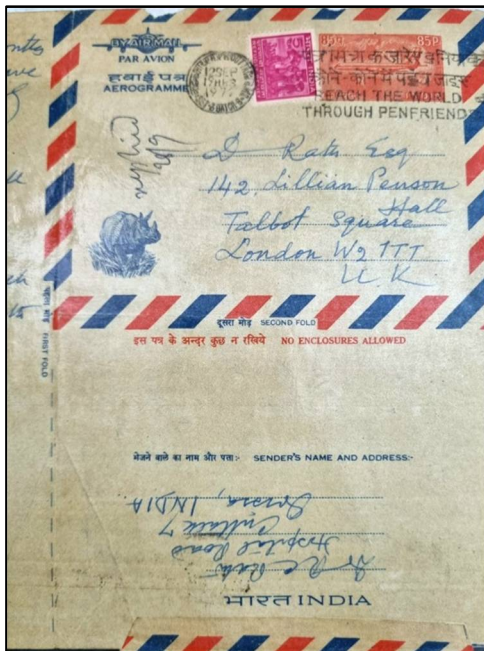 BY AIR MAIL
PAR AVION
हवाई पत्र
AEROGRAMME
85p
85P
12 SEP
1977
REACH THE WORLD
THROUGH PENFRIENDS
replied
D Rath Esq
142, Lillian Penson
Hall
Talbot Square
London W2 1TT
U.K
पहला मोड़ FIRST FOLD
दूसरा मोड़ SECOND FOLD
इस पत्र के अन्दर कुछ न रखिये NO ENCLOSURES ALLOWED
भेजने वाले का नाम और पता:- SENDER'S NAME AND ADDRESS:-
Dr R C Rath
Hospital Road
Cuttack 7
Orissa, INDIA
भारत INDIA